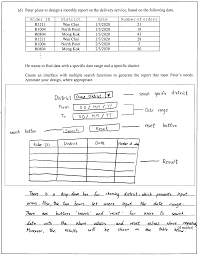 (d) Peter plans to design a monthly report on the delivery service, based on the following data.
Rider ID District Date Number of orders
R1211 Wan Chai 1/5/2020 21
R1004 North Point 1/5/2020 38
R1004 Mong Kok 1/5/2020 43
R1211 Wan Chai 2/5/2020 11
R1004 North Point 2/5/2020 30
R1004 Mong Kok 2/5/2020 40
He wants to find data with a specific date range and a specific district.
Create an interface with multiple search functions to generate the report that meet Peter's needs.
Annotate your design, where appropriate.
District
select specific district
From DD/MM/YY
To DD/MM/YY
Date range
search button
Search
Reset
reset button
Rider ID District Date Orders
Result
There is a drop down box for choosing district which prevents input
error. Also, the two boxes let users input the date range.
There are buttons search and reset for user to search
data into the above criteria and reset values above respectively.
Moreover, the results will be shown in the table below.